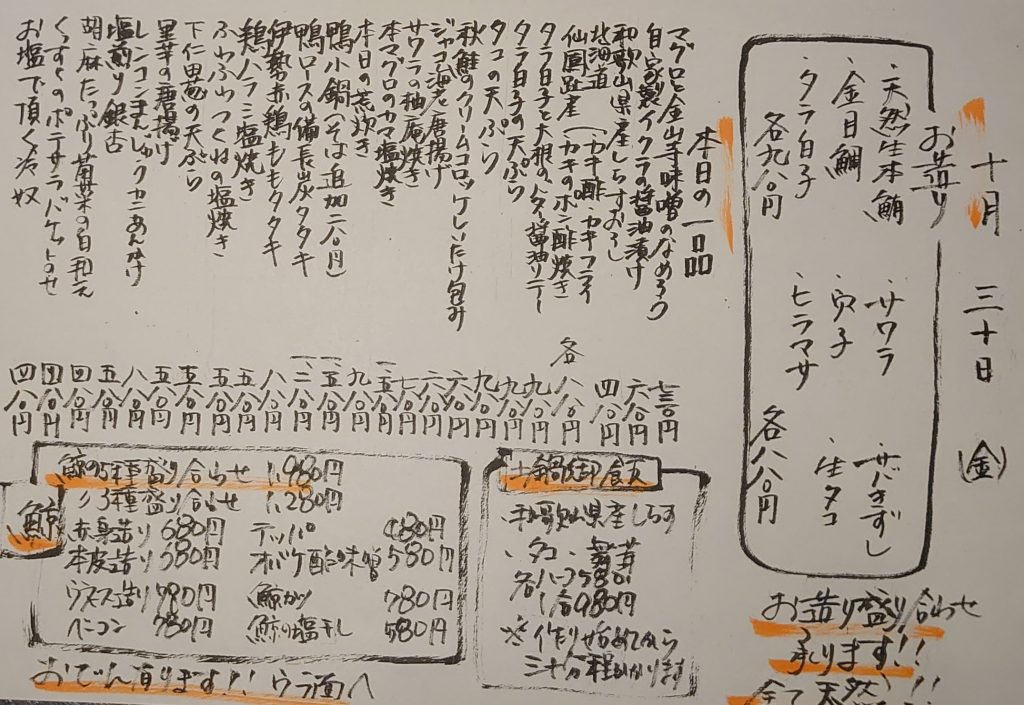 十月 三十日 (金)
お造り
・天然生本鮪
・金目鯛
・タラ白子
各九八〇円
・サワラ
・穴子
・ヒラマサ
・サバきずし
・生タコ
各八八〇円
お造り盛り合わせ
承ります!!
全て天然!!
本日の一品
マグロと金山寺味噌のなめろう 七三〇円
自家製イクラの醤油漬け 六八〇円
和歌山県産しらすおろし 四八〇円
北海道
仙鳳趾産
(・カキ酢・カキフライ
・カキのポン酢焼き 各八八〇円
タラ白子と大根の 醤油ソテー 九八〇円
タラ白子の天ぷら 九八〇円
タコの天ぷら 九八〇円
秋鮭のクリームコロッケしいたけ包み
ジャコ海老唐揚げ
サワラの柚庵焼き
本マグロのカマ塩焼き
本日の荒炊き
鴨小鍋(そば追加二八〇円)
鴨ロースの備長炭タタキ
伊勢赤鶏ももタタキ
鶏ハラミ塩焼き
ふわふわつくねの塩焼き
下仁田葱の天ぷら 五八〇円
里芋の唐揚げ 五八〇円
レンコンまんじゅうカニあんかけ 八八〇円
塩煎り銀杏 五八〇円
胡麻たっぷり菊菜の白和え 四八〇円
くんすものポテサラバケットのせ 四八〇円
お塩で頂く冷奴 四八〇円
土鍋御飯
・和歌山県産しらす
・タコ ・舞茸
各ハーフ580円
1合980円
※作り始めてから
三十分程かかります
鯨
鯨の5種盛り合わせ 1,980円
〃3種盛り合わせ 1,280円
赤身造り 680円
本皮造り 580円
ウネス造り 780円
ベーコン 780円
テッパ 480円
オバケ酢味噌 580円
鯨カツ 780円
鯨の塩干し 580円
おでん有ります!! ウラ面へ